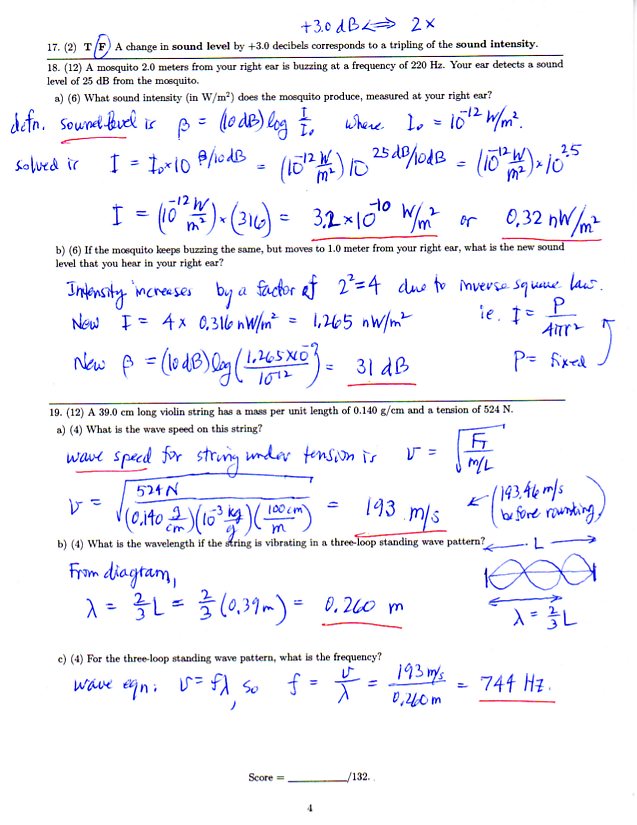 +3.0 dB ⟺ 2×
17. (2) T F A change in sound level by +3.0 decibels corresponds to a tripling of the sound intensity.
18. (12) A mosquito 2.0 meters from your right ear is buzzing at a frequency of 220 Hz. Your ear detects a sound
level of 25 dB from the mosquito.
a) (6) What sound intensity (in W/m²) does the mosquito produce, measured at your right ear?
defn. sound level is β = (10 dB) log I/I₀ where I₀ = 10⁻¹² W/m².
solved is I = I₀ × 10^(β/10dB) = (10⁻¹² W/m²) 10^(25dB/10dB) = (10⁻¹² W/m²) × 10^2.5
I = (10⁻¹² W/m²) × (316) = 3.2 × 10⁻¹⁰ W/m² or 0.32 nW/m²
b) (6) If the mosquito keeps buzzing the same, but moves to 1.0 meter from your right ear, what is the new sound
level that you hear in your right ear?
Intensity increases by a factor of 2² = 4 due to inverse square law.
New I = 4 × 0.316 nW/m² = 1.265 nW/m² ie. I = P/4πr²
New β = (10 dB) log (1.265×10⁻⁹/10⁻¹²) = 31 dB P = fixed
19. (12) A 39.0 cm long violin string has a mass per unit length of 0.140 g/cm and a tension of 524 N.
a) (4) What is the wave speed on this string?
wave speed for string under tension is v = √(F_T/(m/L))
v = √(524 N/((0.140 g/cm)(10⁻³ kg/g)(100cm/m))) = 193 m/s ← (193.46 m/s before rounting)
b) (4) What is the wavelength if the string is vibrating in a three-loop standing wave pattern? ← L →
From diagram,
λ = 2/3 L = 2/3 (0.39m) = 0.260 m λ = 2/3 L
c) (4) For the three-loop standing wave pattern, what is the frequency?
wave eqn: v = fλ, so f = v/λ = 193 m/s / 0.260 m = 744 Hz.
Score = ________/132.
4